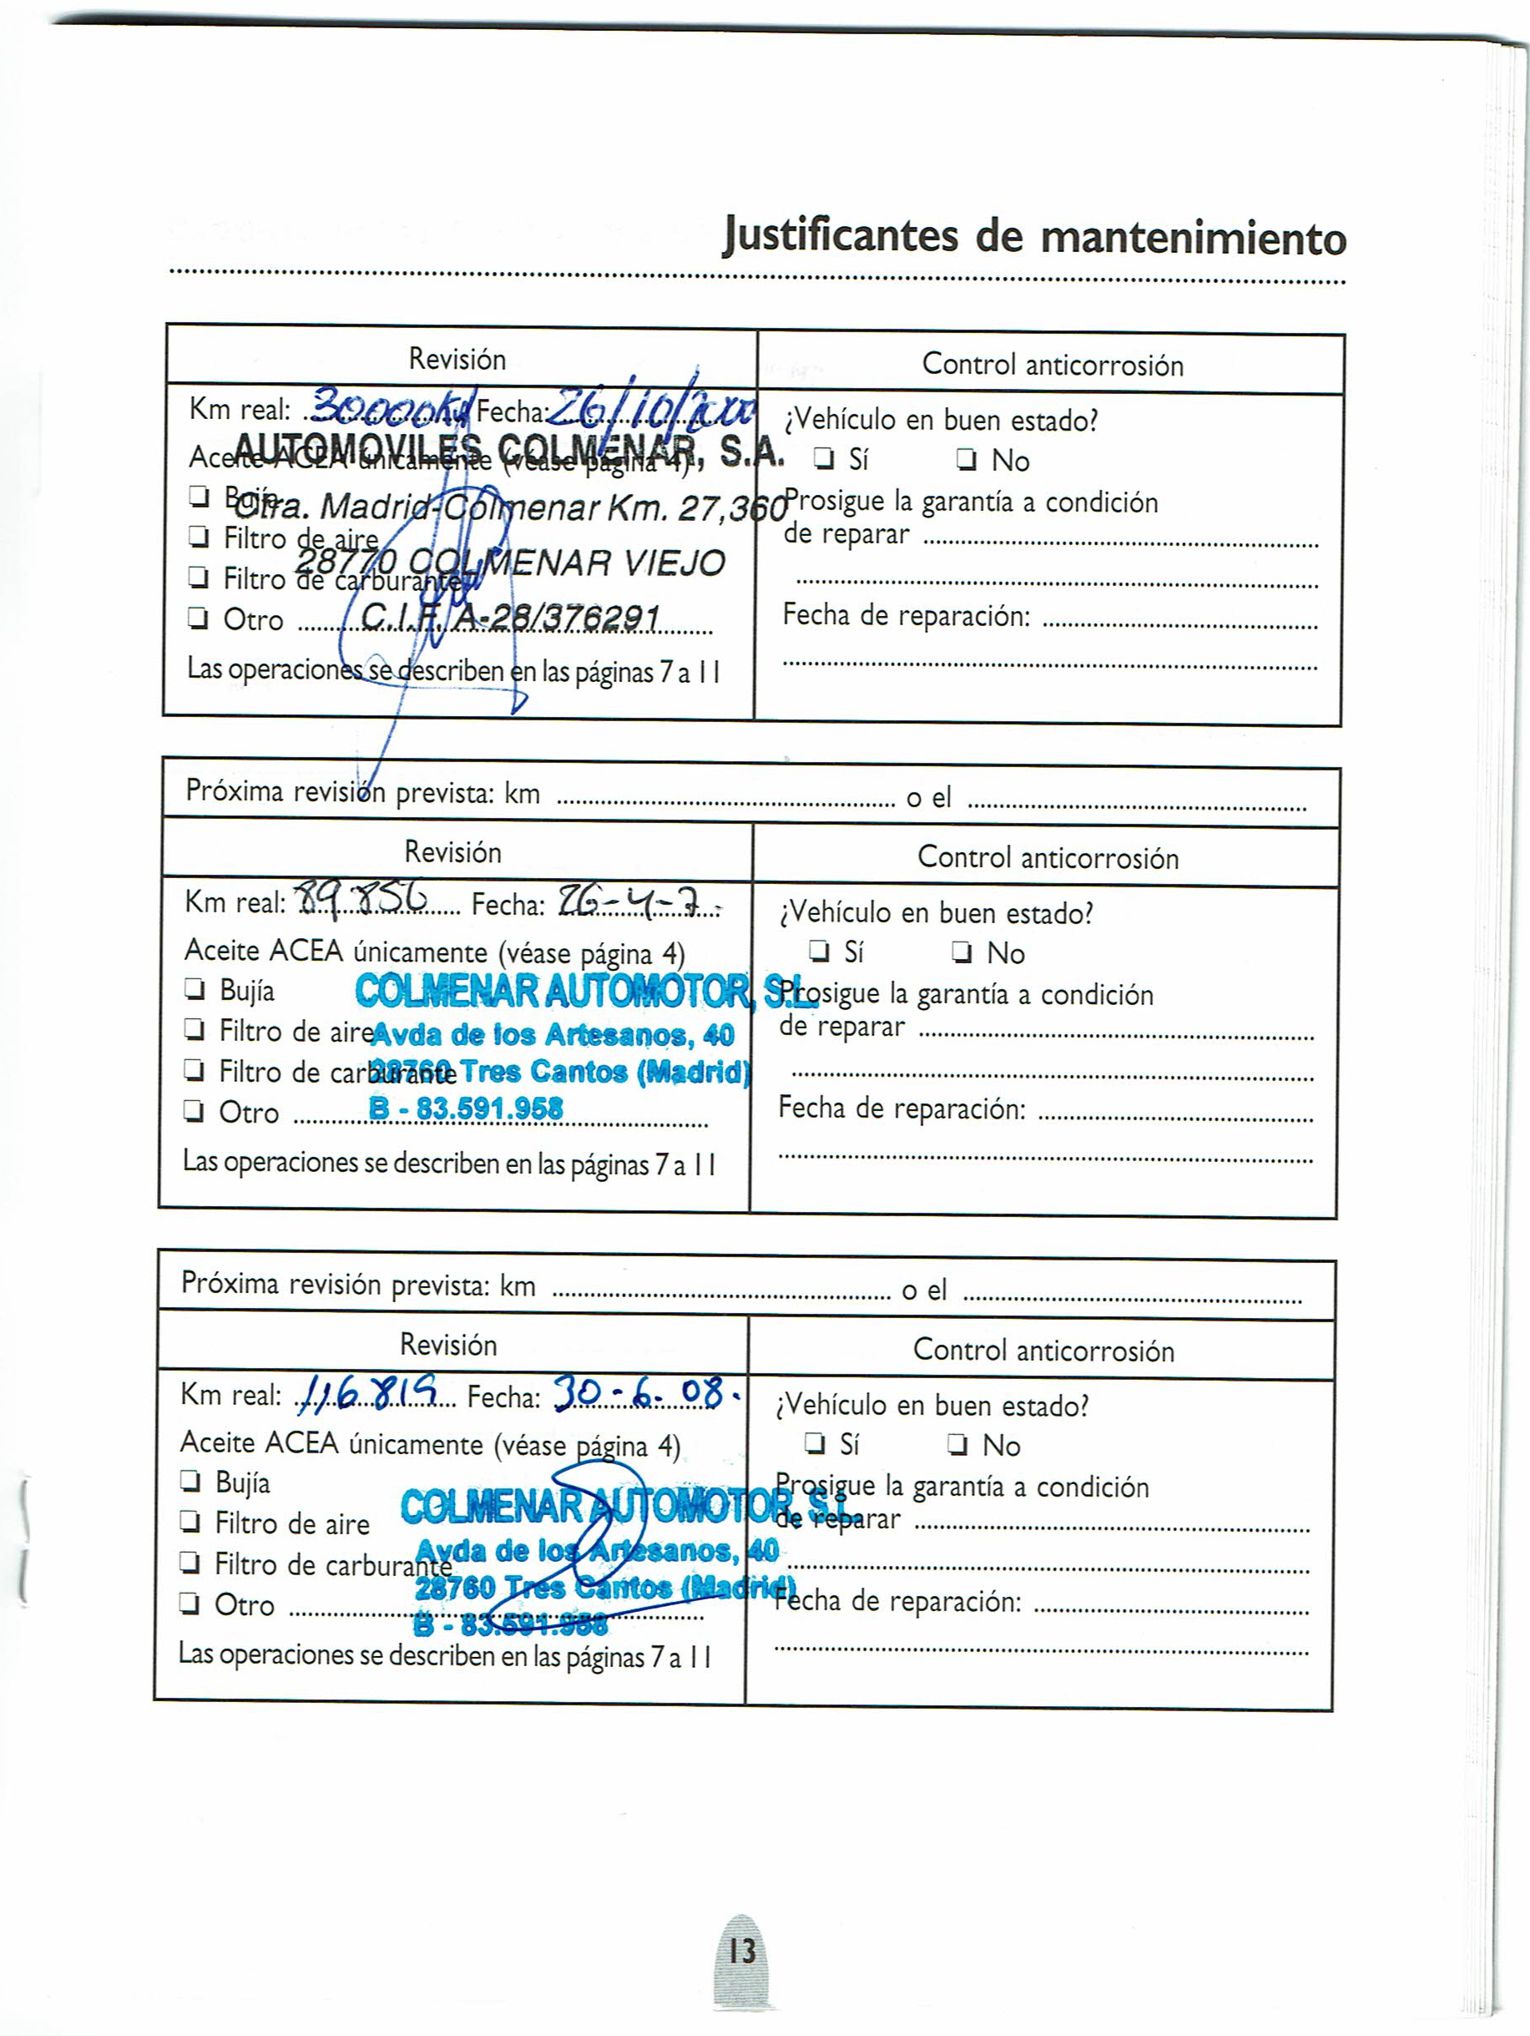 Justificantes de mantenimiento
Revisión
Control anticorrosión
Km real: 30000 Km Fecha: 26/10/2000
AUTOMOVILES COLMENAR, S.A.
Aceite ACEA únicamente (véase página 4)
Bujía
Ctra. Madrid-Colmenar Km. 27,360
Filtro de aire
28770 COLMENAR VIEJO
Filtro de carburante
Otro
C.I.F. A-28/376291
Las operaciones se describen en las páginas 7 a 11
¿Vehículo en buen estado?
Sí No
Prosigue la garantía a condición
de reparar
Fecha de reparación:
Próxima revisión prevista: km o el
Revisión
Control anticorrosión
Km real: 89.856 Fecha: 26-4-7.
Aceite ACEA únicamente (véase página 4)
Bujía
COLMENAR AUTOMOTOR, S.L.
Filtro de aire
Avda de los Artesanos, 40
Filtro de carburante
28760 Tres Cantos (Madrid)
Otro
B - 83.591.958
Las operaciones se describen en las páginas 7 a 11
¿Vehículo en buen estado?
Sí No
Prosigue la garantía a condición
de reparar
Fecha de reparación:
Próxima revisión prevista: km o el
Revisión
Control anticorrosión
Km real: 116.819 Fecha: 30-6-08.
Aceite ACEA únicamente (véase página 4)
Bujía
COLMENAR AUTOMOTOR, S.L.
Filtro de aire
Avda de los Artesanos, 40
Filtro de carburante
28760 Tres Cantos (Madrid)
Otro
B - 83.591.958
Las operaciones se describen en las páginas 7 a 11
¿Vehículo en buen estado?
Sí No
Prosigue la garantía a condición
de reparar
Fecha de reparación:
13